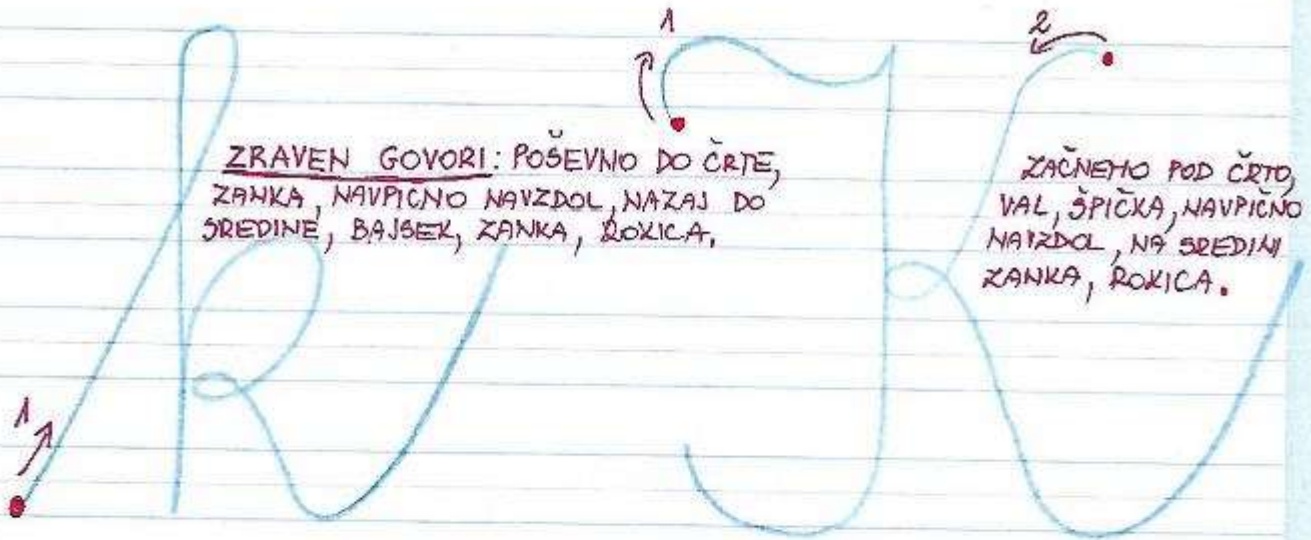 k
ZRAVEN GOVORI: POŠEVNO DO ČRTE,
ZANKA, NAVPIČNO NAVZDOL, NAZAJ DO
SREDINE, BAJSEK, ZANKA, ROKICA.
1
K
1
2
ZAČNEMO POD ČRTO,
VAL, ŠPIČKA, NAVPIČNO
NAVZDOL, NA SREDINI
ZANKA, ROKICA.